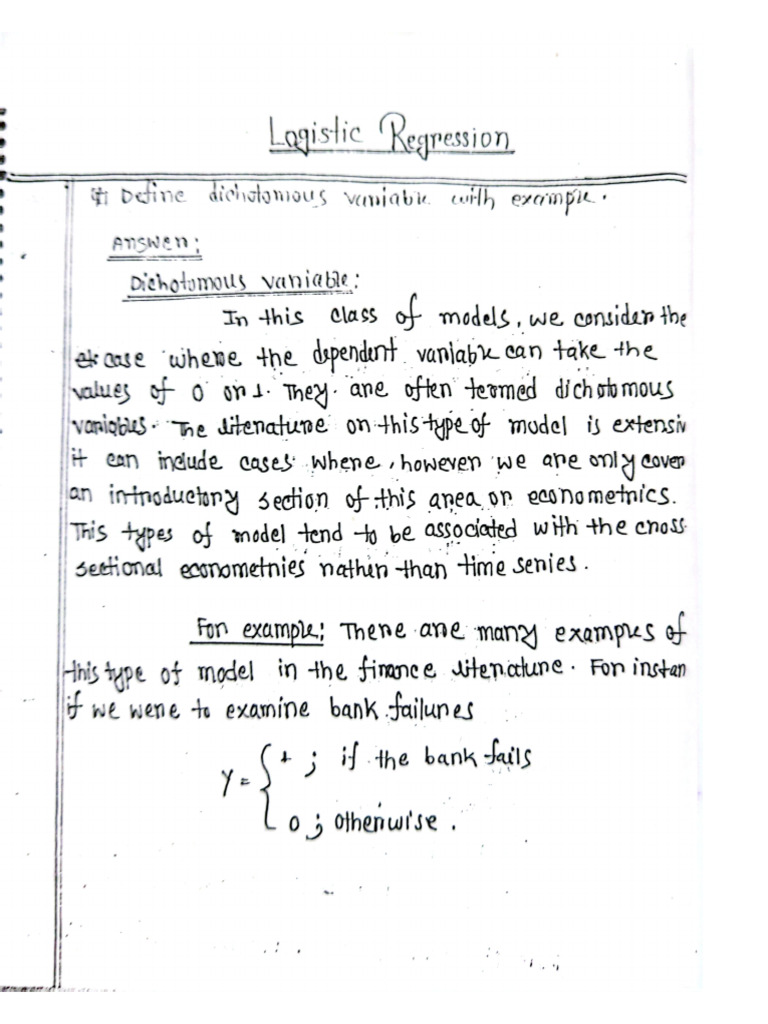 Logistic Regression
# Define dichotomous variable with example.
Answer:
Dichotomous variable:
In this class of models, we consider the
case where the dependent variable can take the
values of 0 or 1. They are often termed dichotomous
variables. The literature on this type of model is extensiv
it can include cases where, however we are only cover
an introductory section of this area or econometrics.
This types of model tend to be associated with the cross
sectional econometries rather than time series.
For example: There are many examples of
this type of model in the finance literature. For instan
if we were to examine bank failures
Y = { 1 ; if the bank fails
0 ; otherwise.